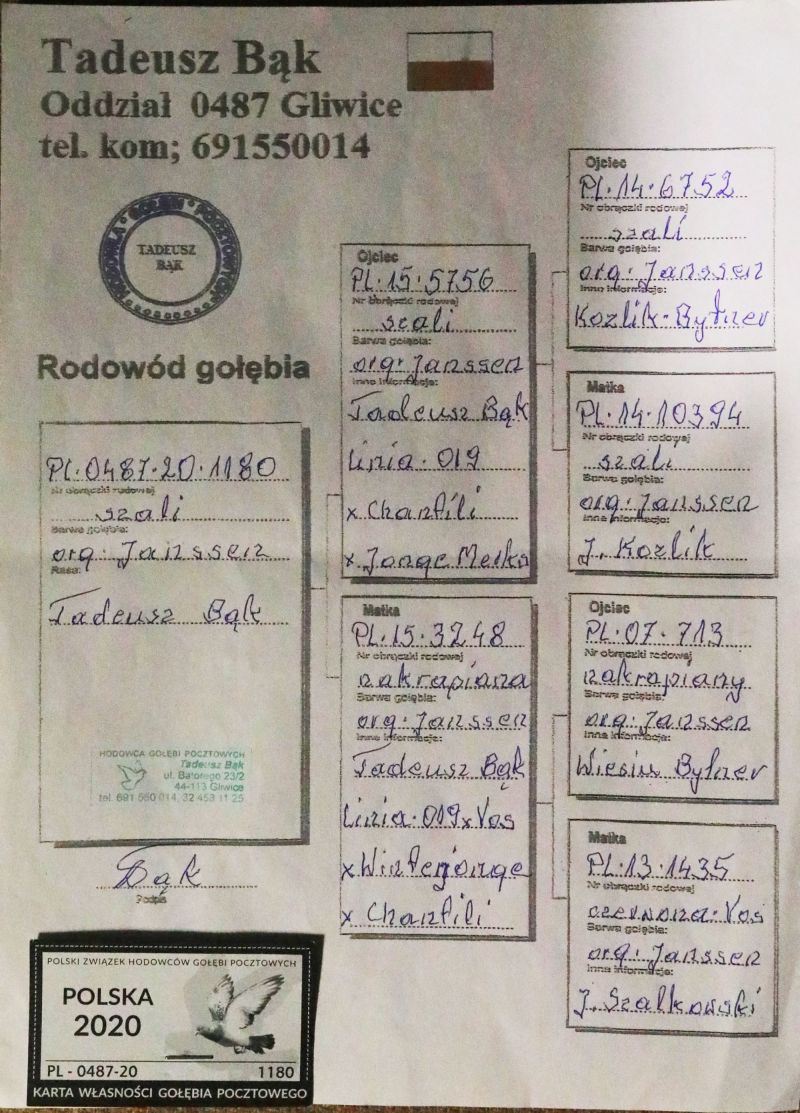 Tadeusz Bąk
Oddział 0487 Gliwice
tel. kom; 691550014
HODOWLA GOŁĘBI POCZTOWYCH
TADEUSZ
BĄK
Rodowód gołębia
PL-0487-20-1180
Nr obrączki rodowej
szali
Barwa gołębia:
org. Janssen
Rasa:
Tadeusz Bąk
HODOWCA GOŁĘBI POCZTOWYCH
Tadeusz Bąk
ul. Batorego 23/2
44-113 Gliwice
tel. 691 550 014, 32 453 11 25
Bąk
Podpis
Ojciec
PL-15-5756
Nr obrączki rodowej
szali
Barwa gołębia:
org. Janssen
Inne informacje:
Tadeusz Bąk
Linia - 019
x Chantili
x Jonge Merks
Matka
PL-15-3248
Nr obrączki rodowej
nakrapiana
Barwa gołębia:
org. Janssen
Inne informacje:
Tadeusz Bąk
Linia - 019 x Vos
x Winterjonge
x Chantili
Ojciec
PL-14-6752
Nr obrączki rodowej
szali
Barwa gołębia:
org. Janssen
Inne informacje:
Kozlik - Bytner
Matka
PL-14-10394
Nr obrączki rodowej
szali
Barwa gołębia:
org. Janssen
Inne informacje:
J. Kozlik
Ojciec
PL-07-713
Nr obrączki rodowej
nakrapiany
Barwa gołębia:
org. Janssen
Inne informacje:
Wiesiu Bytner
Matka
PL-13-1435
Nr obrączki rodowej
czerwona - Vos
Barwa gołębia:
org. Janssen
Inne informacje:
J. Szałkowski
POLSKI ZWIĄZEK HODOWCÓW GOŁĘBI POCZTOWYCH
POLSKA
2020
PL - 0487-20 1180
KARTA WŁASNOŚCI GOŁĘBIA POCZTOWEGO